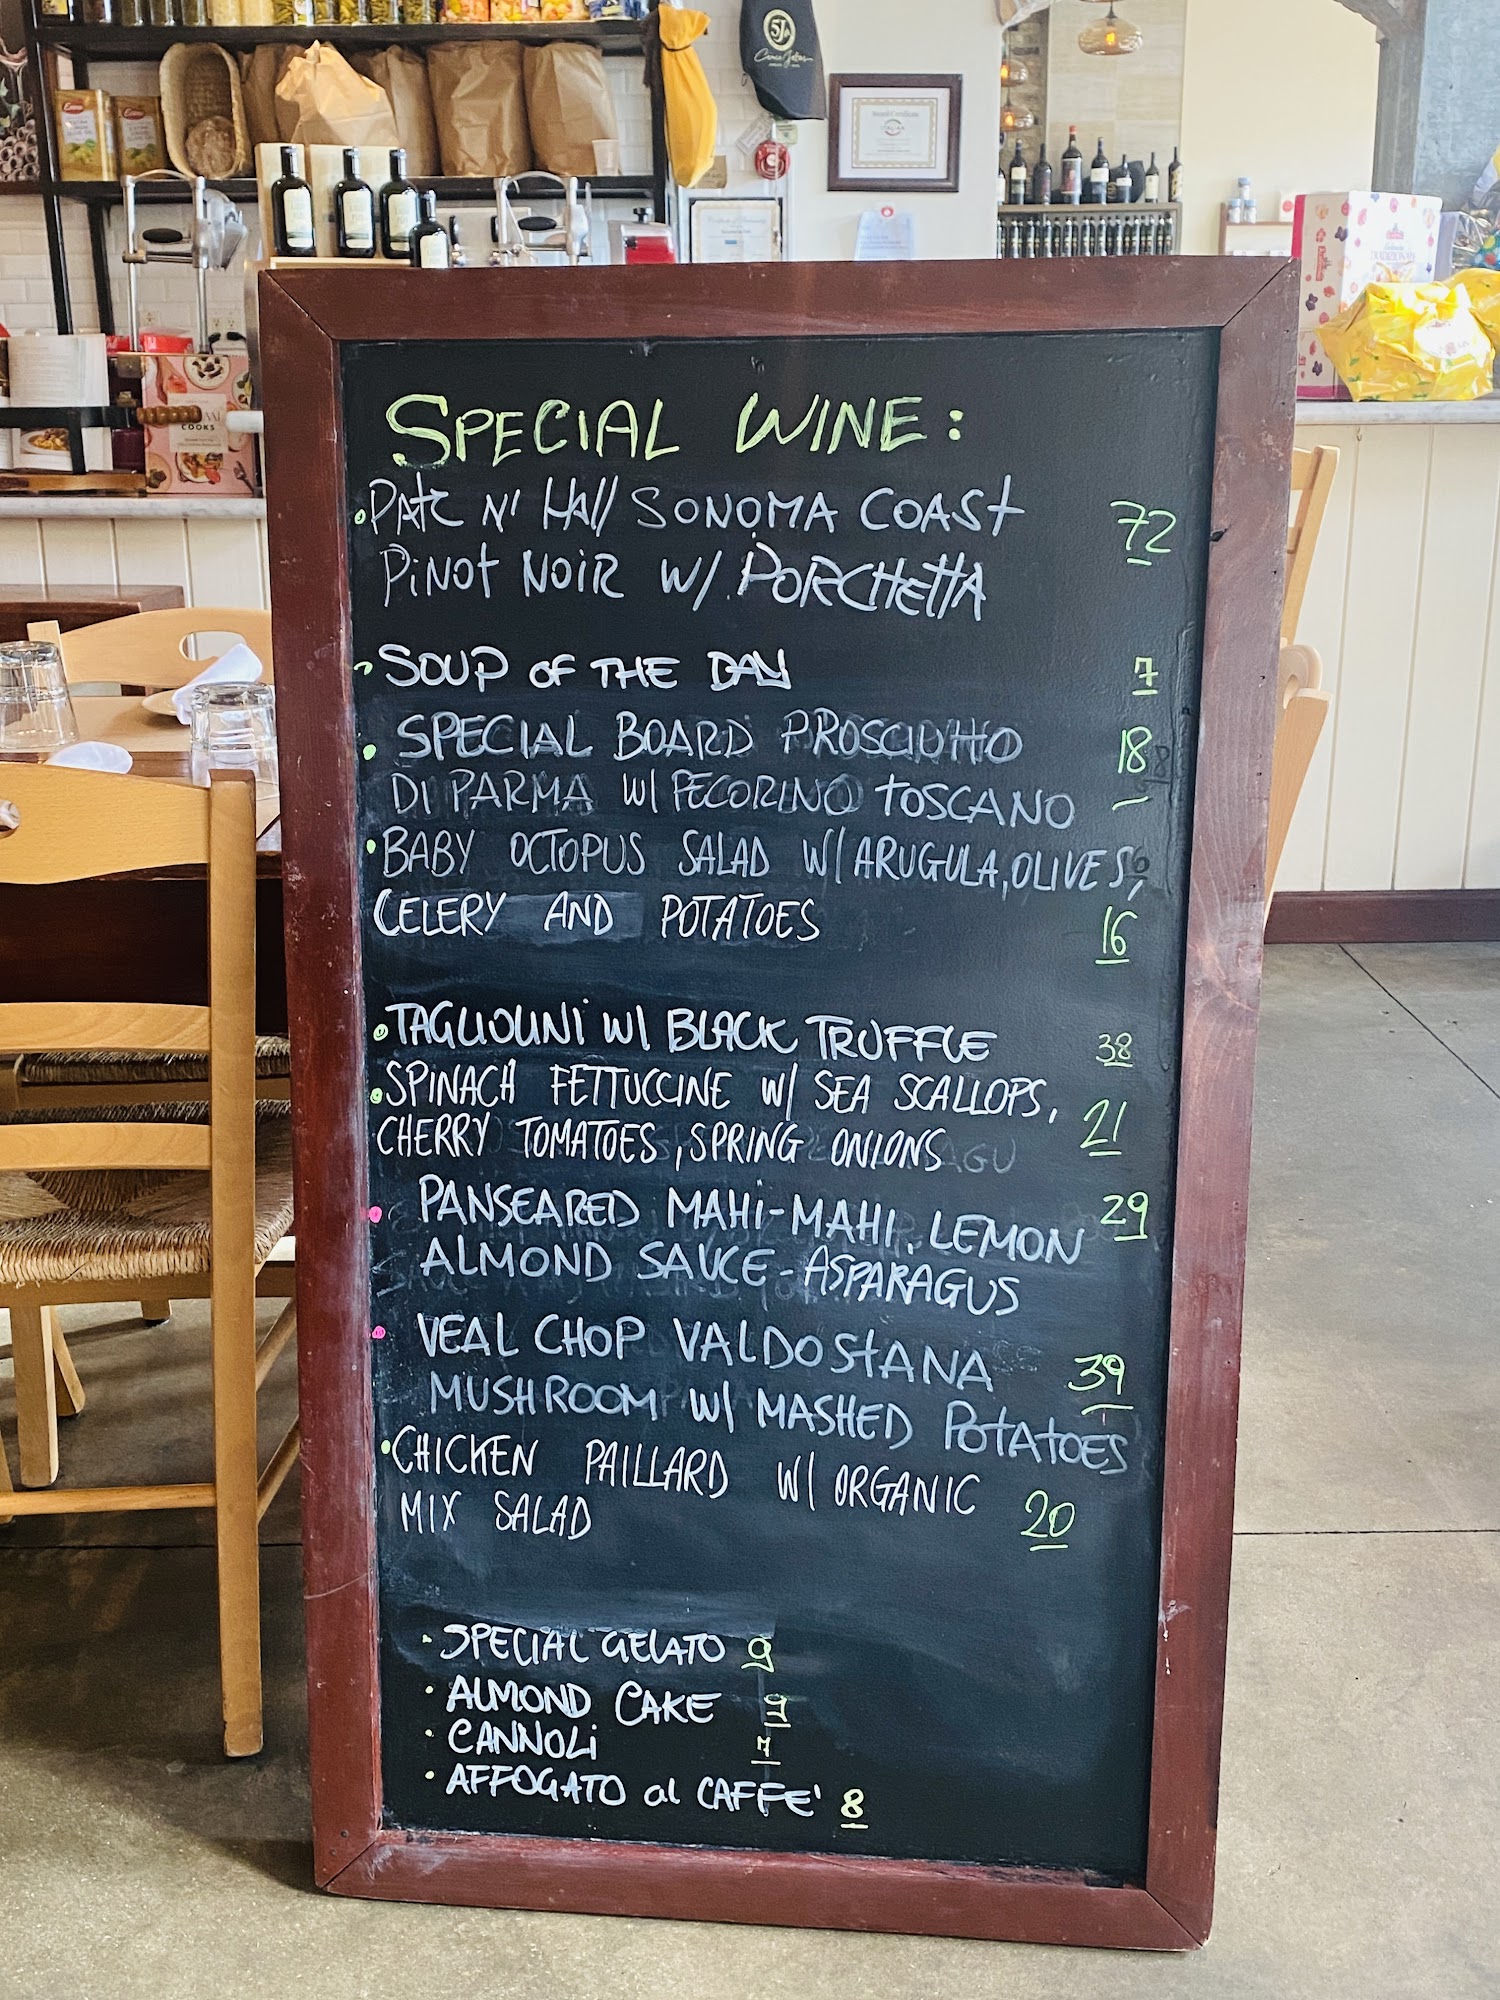 5J
SPECIAL WINE:
PAtz N' HAll SONOMA COASt 72
PiNOt NOiR W/ PORCHEttA
SOUP OF THE DAY 7
SPECIAL BOARD PROSCIUttO 18
DI PARMA W/ PECORINO TOSCANO
BABY OCTOPUS SALAD W/ ARUGULA, OLIVES,
CELERY AND POTATOES 16
TAGLIOLINI W/ BLACK TRUFFLE 38
SPINACH FETTUCCINE W/ SEA SCALLOPS,
CHERRY TOMATOES, SPRING ONIONS 21
PANSEARED MAHI-MAHI, LEMON 29
ALMOND SAUCE - ASPARAGUS
VEAL CHOP VALDOStANA 39
MUSHROOM W/ MASHED POtAtOES
CHICKEN PAILLARD W/ ORGANIC
MIX SALAD 20
SPECIAL GELATO 9
ALMOND CAKE 9
CANNOLi 7
AFFOGATO al CAFFE' 8
COOKS